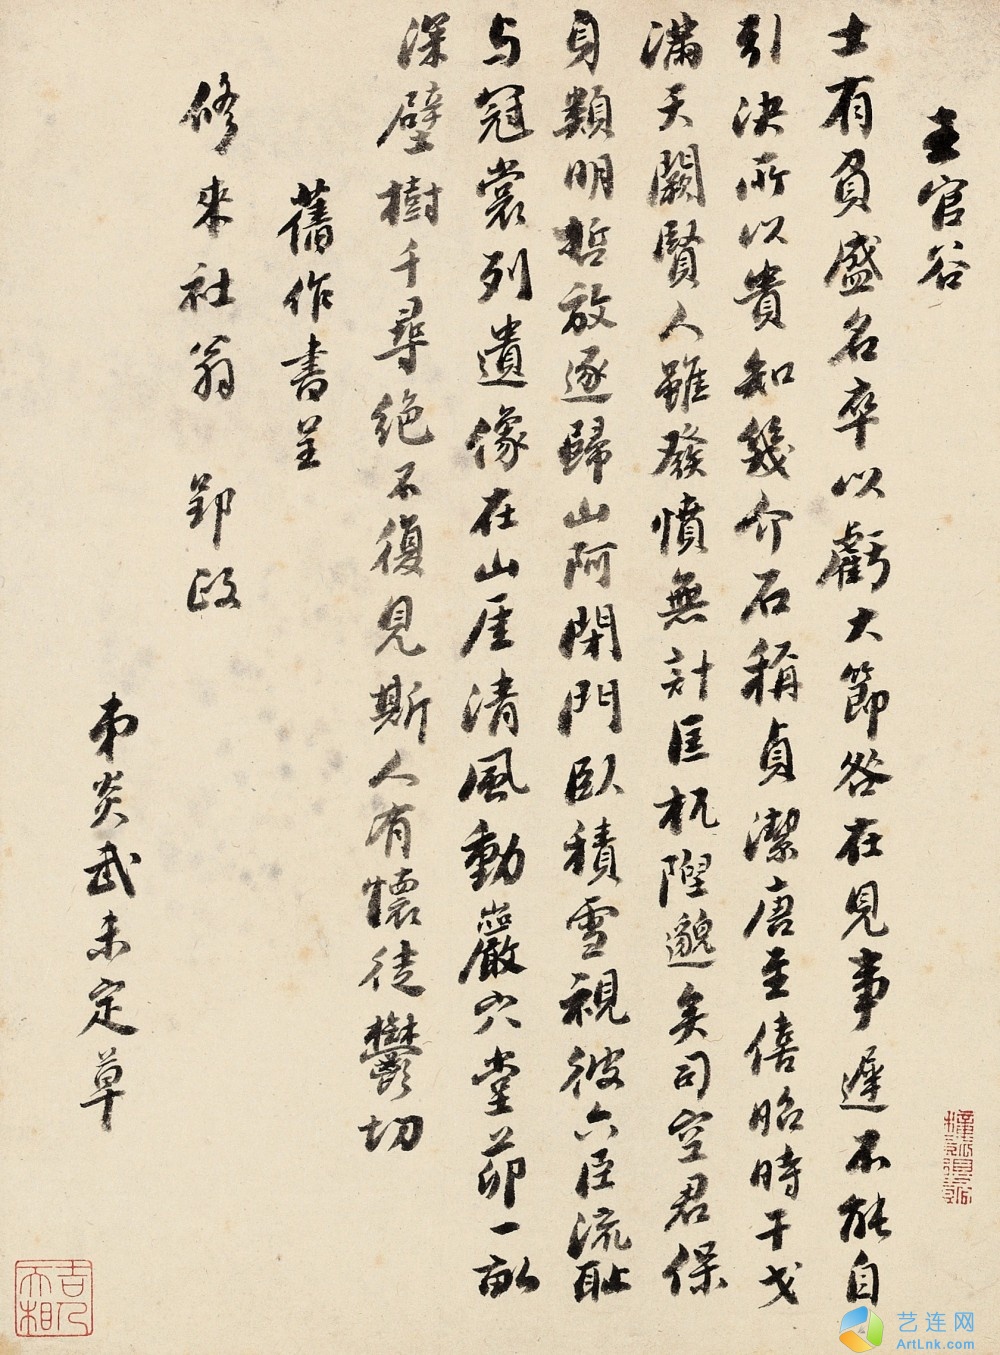 王官谷
士有負盛名卒以虧大節咎在見事遲不能自
引決所以貴知幾介石稱貞潔唐至僖昭時干戈
滿天闕賢人雖發憤無計匡杌隉邈矣司空君保
身類明哲放逐歸山阿閉門臥積雪視彼六臣流恥
与冠裳列遺像在山厓清風動巖穴堂茆一畝
深壁樹千尋絕不復見斯人有懷徒鬱切
舊作書呈
修來社翁 郢政
弟炎武未定草
吉人天相
艺连网
ArtLnk.com